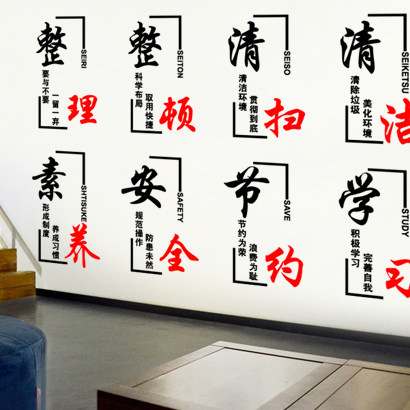 整理
SEIRI
要与不要
一留一弃
整顿
SEITON
科学布局
取用快捷
清扫
SEISO
清洁环境
贯彻到底
清洁
SEIKETSU
清除垃圾
美化环境
素养
SHTSUKE
形成制度
养成习惯
安全
SAFETY
规范操作
防患未然
节约
SAVE
节约为荣
浪费为耻
学习
STUDY
积极学习
完善自我